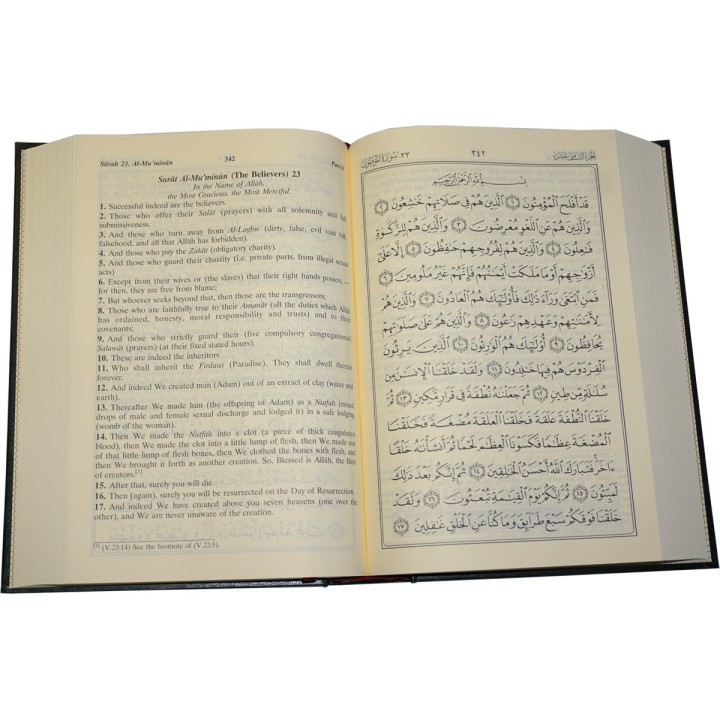 Sūrah 23. Al-Mu'minūn
342
Part 18
Sūrat Al-Mu'minūn (The Believers) 23
In the Name of Allāh,
the Most Gracious, the Most Merciful.
1. Successful indeed are the believers.
2. Those who offer their Salāt (prayers) with all solemnity and full
submissiveness.
3. And those who turn away from Al-Laghw (dirty, false, evil vain talk,
falsehood, and all that Allāh has forbidden).
4. And those who pay the Zakāt (obligatory charity).
5. And those who guard their chastity (i.e. private parts, from illegal sexual
acts)
6. Except from their wives or (the slaves) that their right hands possess, —
for then, they are free from blame;
7. But whoever seeks beyond that, then those are the transgressors;
8. Those who are faithfully true to their Amanāt (all the duties which Allāh
has ordained, honesty, moral responsibility and trusts) and to their
covenants;
9. And those who strictly guard their (five compulsory congregational)
Salawāt (prayers) (at their fixed stated hours).
10. These are indeed the inheritors
11. Who shall inherit the Firdaus (Paradise). They shall dwell therein
forever.
12. And indeed We created man (Adam) out of an extract of clay (water and
earth).
13. Thereafter We made him (the offspring of Adam) as a Nutfah (mixed
drops of male and female sexual discharge and lodged it) in a safe lodging
(womb of the woman).
14. Then We made the Nutfah into a clot (a piece of thick coagulated
blood), then We made the clot into a little lump of flesh, then We made out
of that little lump of flesh bones, then We clothed the bones with flesh, and
then We brought it forth as another creation. So, Blessed is Allāh, the Best
of creators.[1]
15. After that, surely you will die.
16. Then (again), surely you will be resurrected on the Day of Resurrection.
17. And indeed We have created above you seven heavens (one over the
other), and We are never unaware of the creation.
[1] (V.23:14) See the footnote of (V.22:5).
الجزء الثامن عشر
٣٤٢
سورة المؤمنون ٢٣
بِسْمِ اللَّهِ الرَّحْمَٰنِ الرَّحِيمِ
قَدْ أَفْلَحَ الْمُؤْمِنُونَ ١ الَّذِينَ هُمْ فِي صَلَاتِهِمْ خَاشِعُونَ ٢
وَالَّذِينَ هُمْ عَنِ اللَّغْوِ مُعْرِضُونَ ٣ وَالَّذِينَ هُمْ لِلزَّكَوٰةِ
فَاعِلُونَ ٤ وَالَّذِينَ هُمْ لِفُرُوجِهِمْ حَافِظُونَ ٥ إِلَّا عَلَىٰ
أَزْوَاجِهِمْ أَوْ مَا مَلَكَتْ أَيْمَانُهُمْ فَإِنَّهُمْ غَيْرُ مَلُومِينَ ٦
فَمَنِ ابْتَغَىٰ وَرَاءَ ذَٰلِكَ فَأُولَٰئِكَ هُمُ الْعَادُونَ ٧ وَالَّذِينَ هُمْ
لِأَمَانَاتِهِمْ وَعَهْدِهِمْ رَاعُونَ ٨ وَالَّذِينَ هُمْ عَلَىٰ صَلَوَاتِهِمْ
يُحَافِظُونَ ٩ أُولَٰئِكَ هُمُ الْوَارِثُونَ ١٠ الَّذِينَ يَرِثُونَ
الْفِرْدَوْسَ هُمْ فِيهَا خَالِدُونَ ١١ وَلَقَدْ خَلَقْنَا الْإِنسَانَ مِن
سُلَالَةٍ مِّن طِينٍ ١٢ ثُمَّ جَعَلْنَاهُ نُطْفَةً فِي قَرَارٍ مَّكِينٍ ١٣ ثُمَّ
خَلَقْنَا النُّطْفَةَ عَلَقَةً فَخَلَقْنَا الْعَلَقَةَ مُضْغَةً فَخَلَقْنَا
الْمُضْغَةَ عِظَامًا فَكَسَوْنَا الْعِظَامَ لَحْمًا ثُمَّ أَنشَأْنَاهُ خَلْقًا
ءَاخَرَ فَتَبَارَكَ اللَّهُ أَحْسَنُ الْخَالِقِينَ ١٤ ثُمَّ إِنَّكُم بَعْدَ ذَٰلِكَ
لَمَيِّتُونَ ١٥ ثُمَّ إِنَّكُمْ يَوْمَ الْقِيَامَةِ تُبْعَثُونَ ١٦ وَلَقَدْ
خَلَقْنَا فَوْقَكُمْ سَبْعَ طَرَائِقَ وَمَا كُنَّا عَنِ الْخَلْقِ غَافِلِينَ ١٧